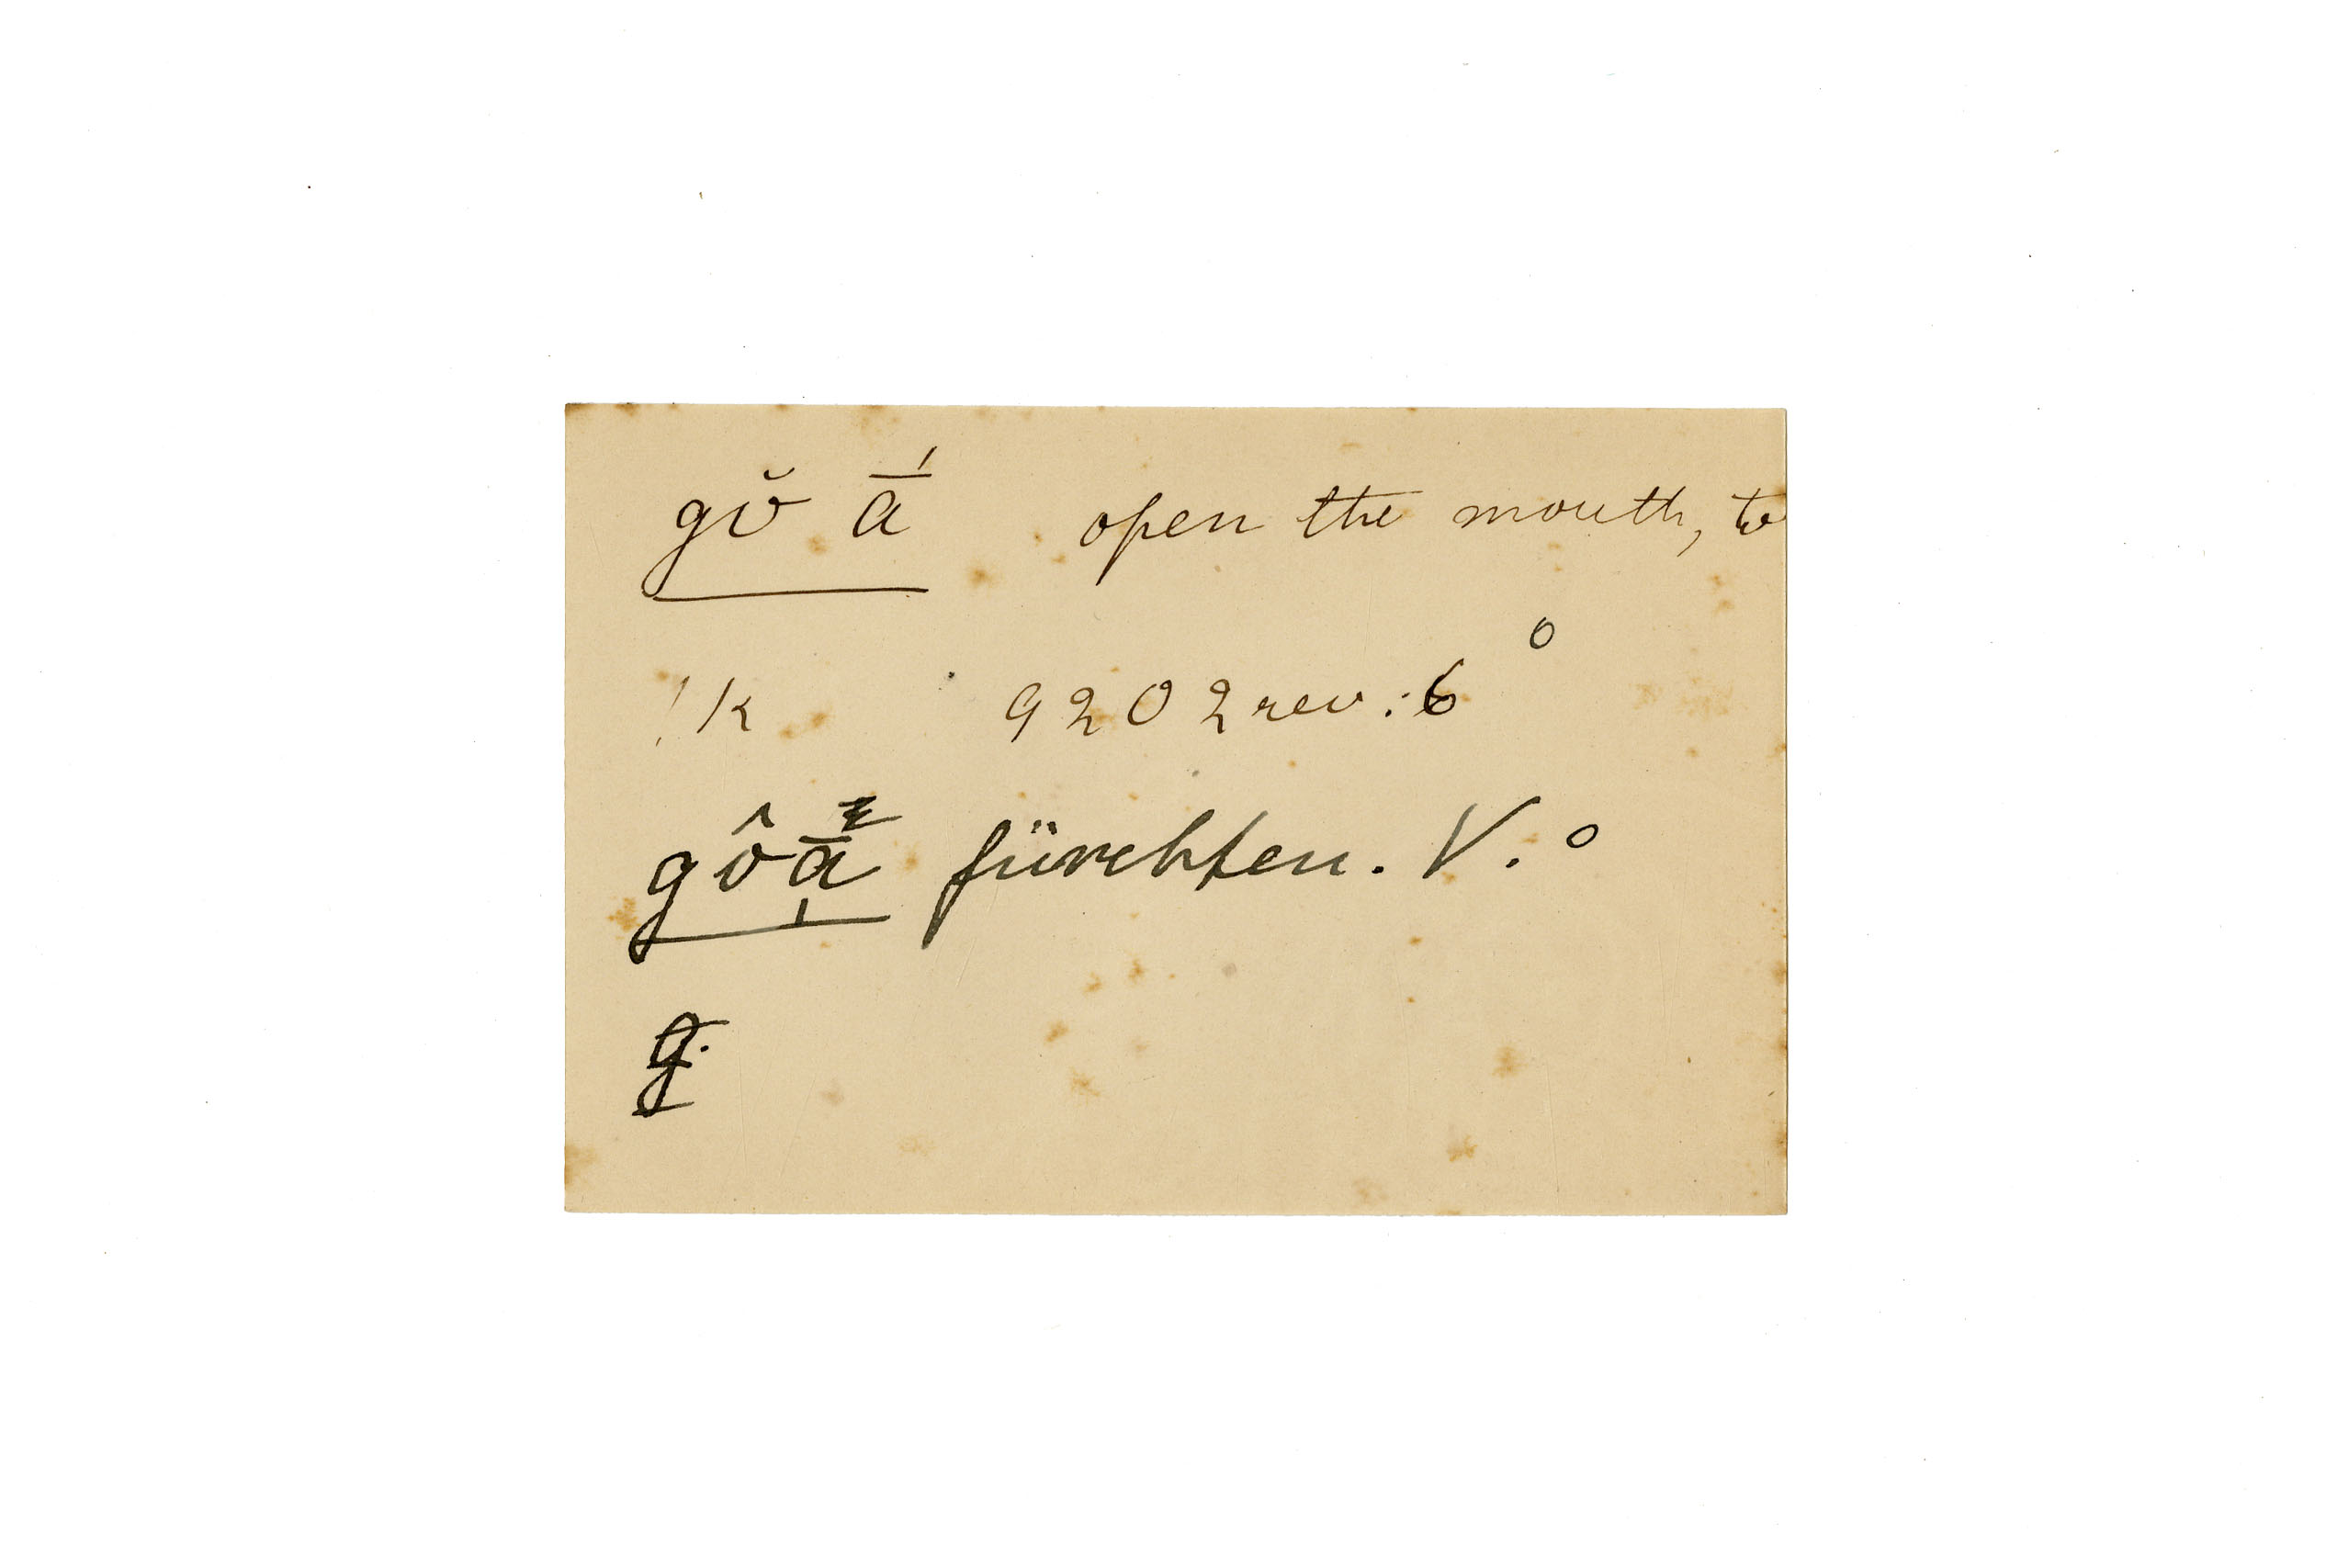 gŏ ā́ open the mouth, to
!k 9202 rev:6 o
gôā fürchten. V. o
g.